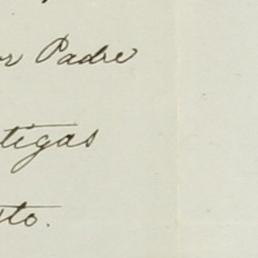 or Padre
tigas
to.